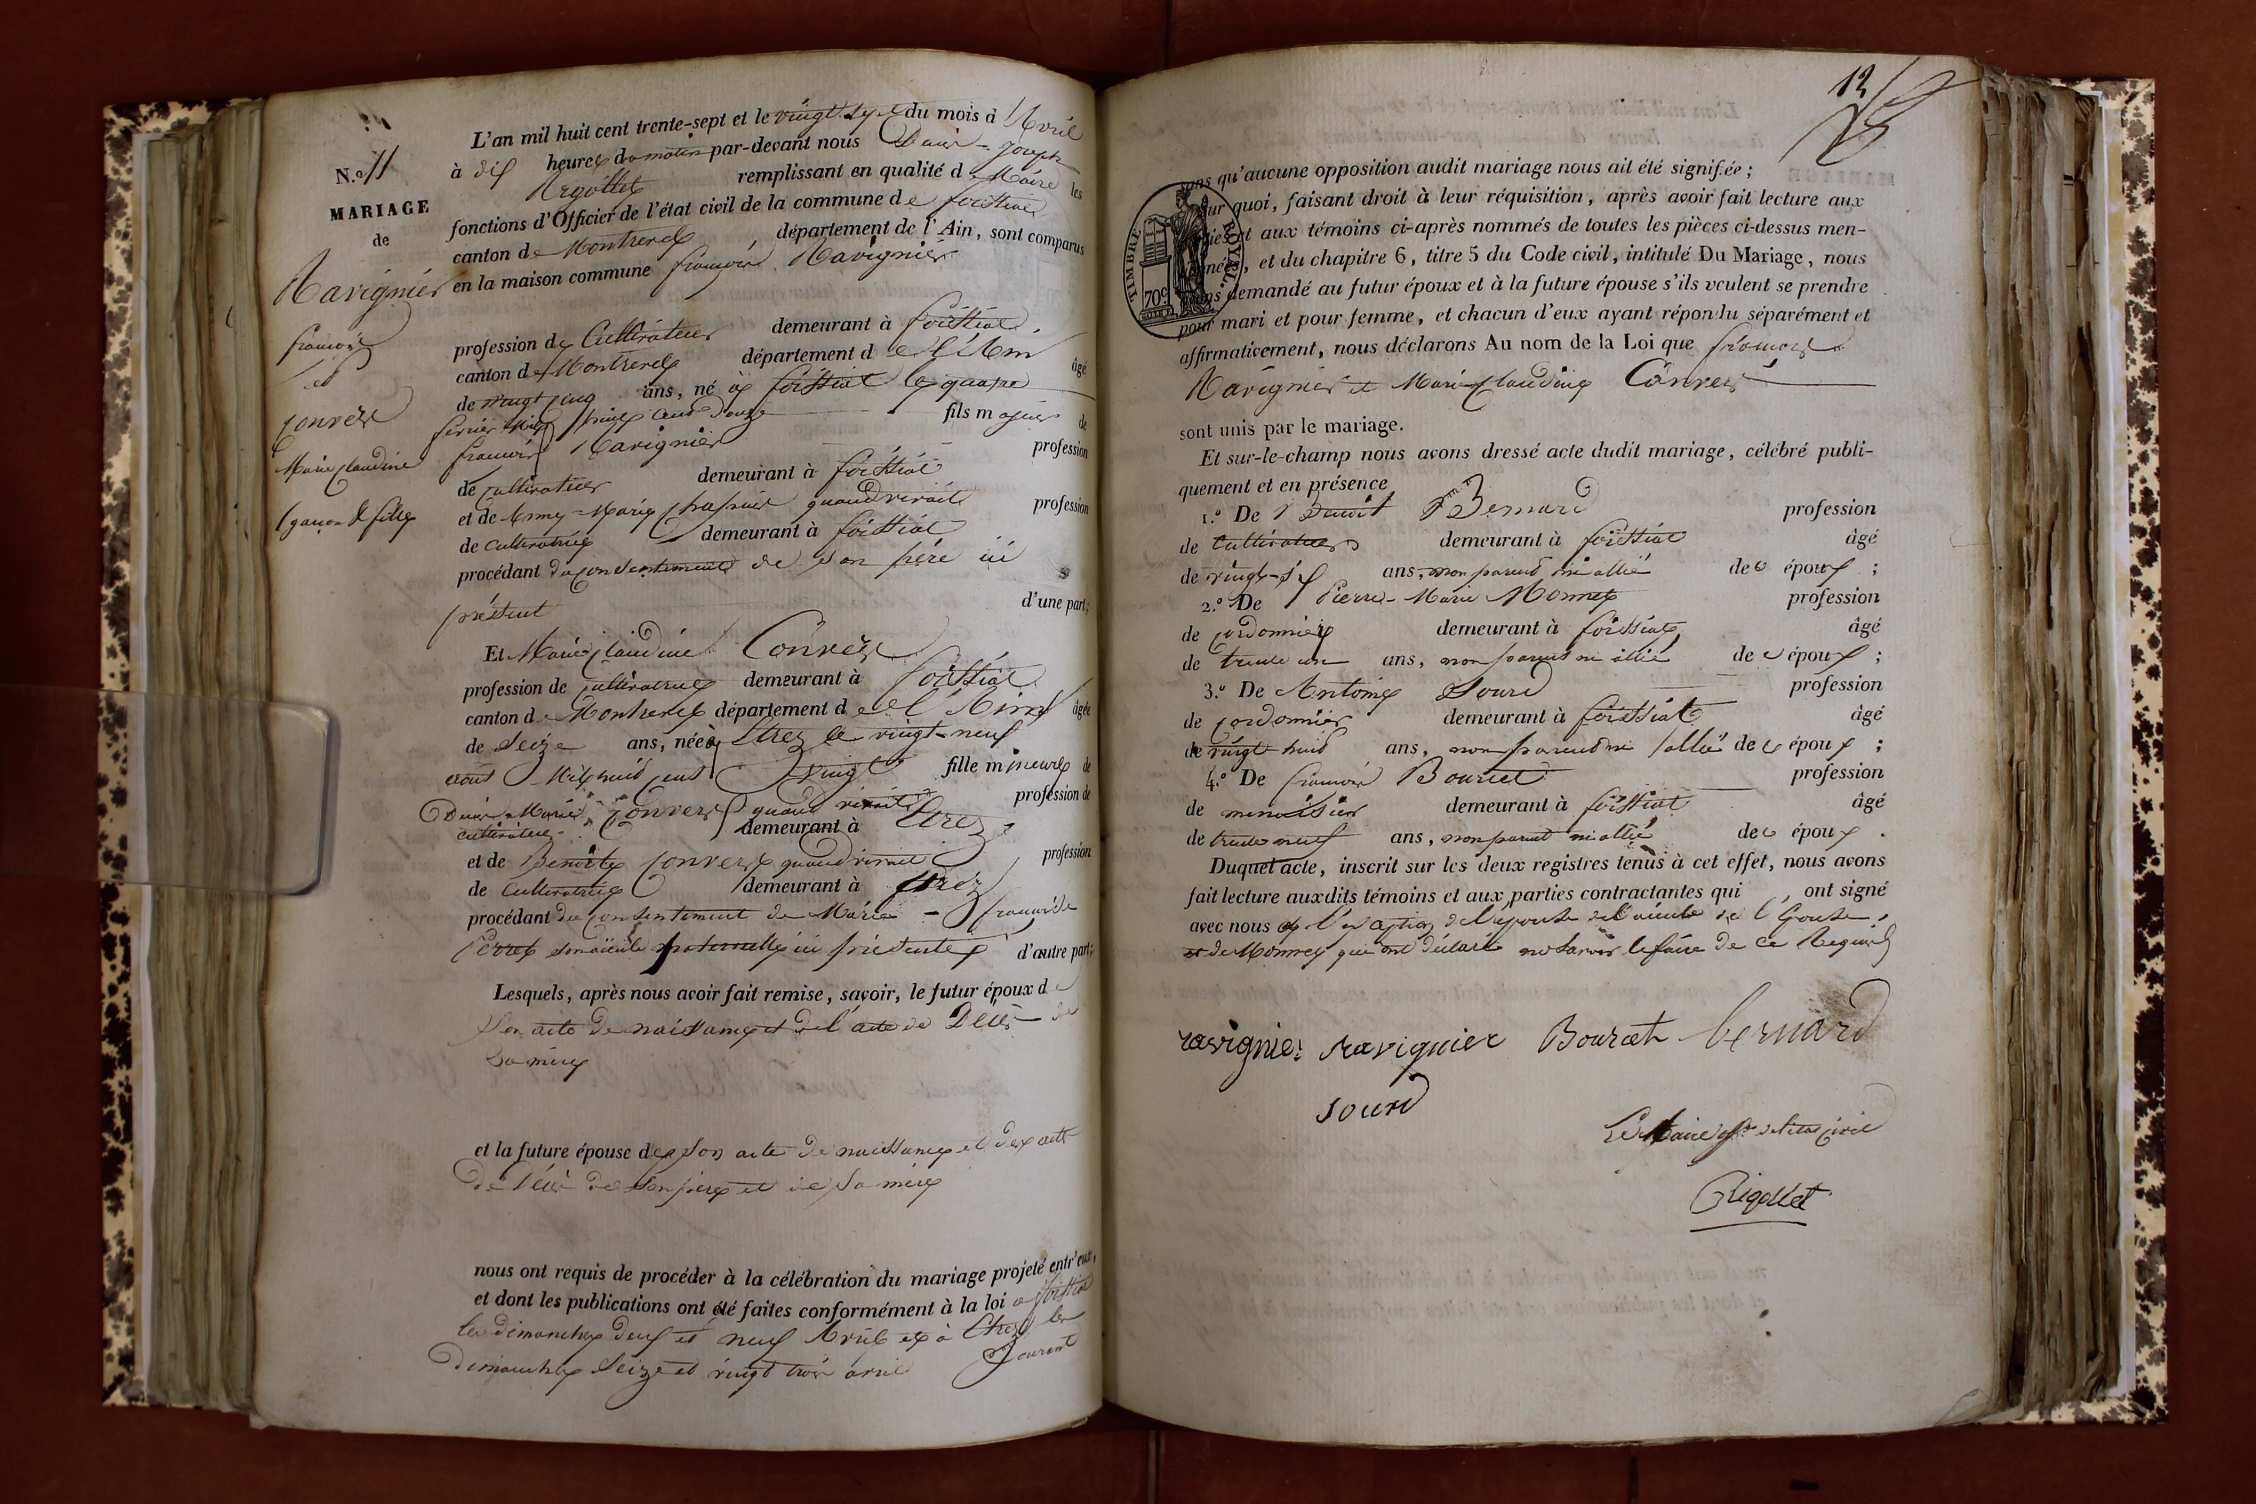 N.o 11
MARIAGE
de
Ravignier
françois
et
Convers
Marie Claudine
garçon & fille
L'an mil huit cent trente-sept et le vingt sept du mois d'Avril
à dix heures du matin par-devant nous Denis-Joseph
Rigollet remplissant en qualité de Maire les
fonctions d'Officier de l'état civil de la commune de foissiat
canton de Montrevel département de l'Ain, sont comparus
en la maison commune françois Ravignier
profession de Cultivateur demeurant à foissiat
canton de Montrevel département de l'Ain âgé
de vingt cinq ans, né à foissiat le quatre
février mil huit cent douze fils majeur de
françois Ravignier profession
de cultivateur demeurant à foissiat
et de Marie quand vivait profession
de cultivatrice demeurant à foissiat
procédant du consentement de son père ici
présent d'une part;
Et Marie Claudine Convers
profession de cultivatrice demeurant à foissiat
canton de Montrevel département de l'Ain âgée
de seize ans, née à Etrez le vingt-neuf
août mil huit cent vingt fille mineure de
Denis-Marie Convers quand vivait profession de
cultivateur demeurant à Etrez
et de Benoite Convers quand vivait profession
de cultivatrice demeurant à Etrez
procédant du consentement de Marie-françoise
Perret son aieule paternelle ici présente d'autre part;
Lesquels, après nous avoir fait remise, savoir, le futur époux de
son acte de naissance et de l'acte de décès de
sa mère
et la future épouse de son acte de naissance et des actes
de décès de son père et de sa mère
nous ont requis de procéder à la célébration du mariage projeté entr'eux,
et dont les publications ont été faites conformément à la loi à foissiat
les dimanches deux et neuf avril et à Etrez les
dimanches seize et vingt trois avril courant
12
sans qu'aucune opposition audit mariage nous ait été signifiée;
Sur quoi, faisant droit à leur réquisition, après avoir fait lecture aux
parties et aux témoins ci-après nommés de toutes les pièces ci-dessus men-
tionnées, et du chapitre 6, titre 5 du Code civil, intitulé Du Mariage, nous
avons demandé au futur époux et à la future épouse s'ils veulent se prendre
pour mari et pour femme, et chacun d'eux ayant répondu séparément et
affirmativement, nous déclarons Au nom de la Loi que françois
Ravignier et Marie Claudine Convers
sont unis par le mariage.
Et sur-le-champ nous avons dressé acte dudit mariage, célébré publi-
quement et en présence
1.o De Benoit Bernard profession
de Cultivateur demeurant à foissiat âgé
de vingt-six ans, non parent ni allié des époux ;
2.o De Pierre-Marie Monnet profession
de cordonnier demeurant à foissiat âgé
de trente un ans, non parent ni allié des époux ;
3.o De Antoine Sourd profession
de cordonnier demeurant à foissiat âgé
de vingt huit ans, non parent ni allié des époux ;
4.o De françois Bourcet profession
de menuisier demeurant à foissiat âgé
de trente neuf ans, non parent ni allié des époux .
Duquel acte, inscrit sur les deux registres tenus à cet effet, nous avons
fait lecture auxdits témoins et aux parties contractantes qui ont signé
avec nous à l'exception de l'épouse de l'aieule de l'épouse,
et de Monnet qui ont déclaré ne savoir le faire de ce Requis
ravignier ravignier Bourcet bernard
sourd
Le Maire off. de l'état civil
Rigollet
TIMBRE ROYAL
70c